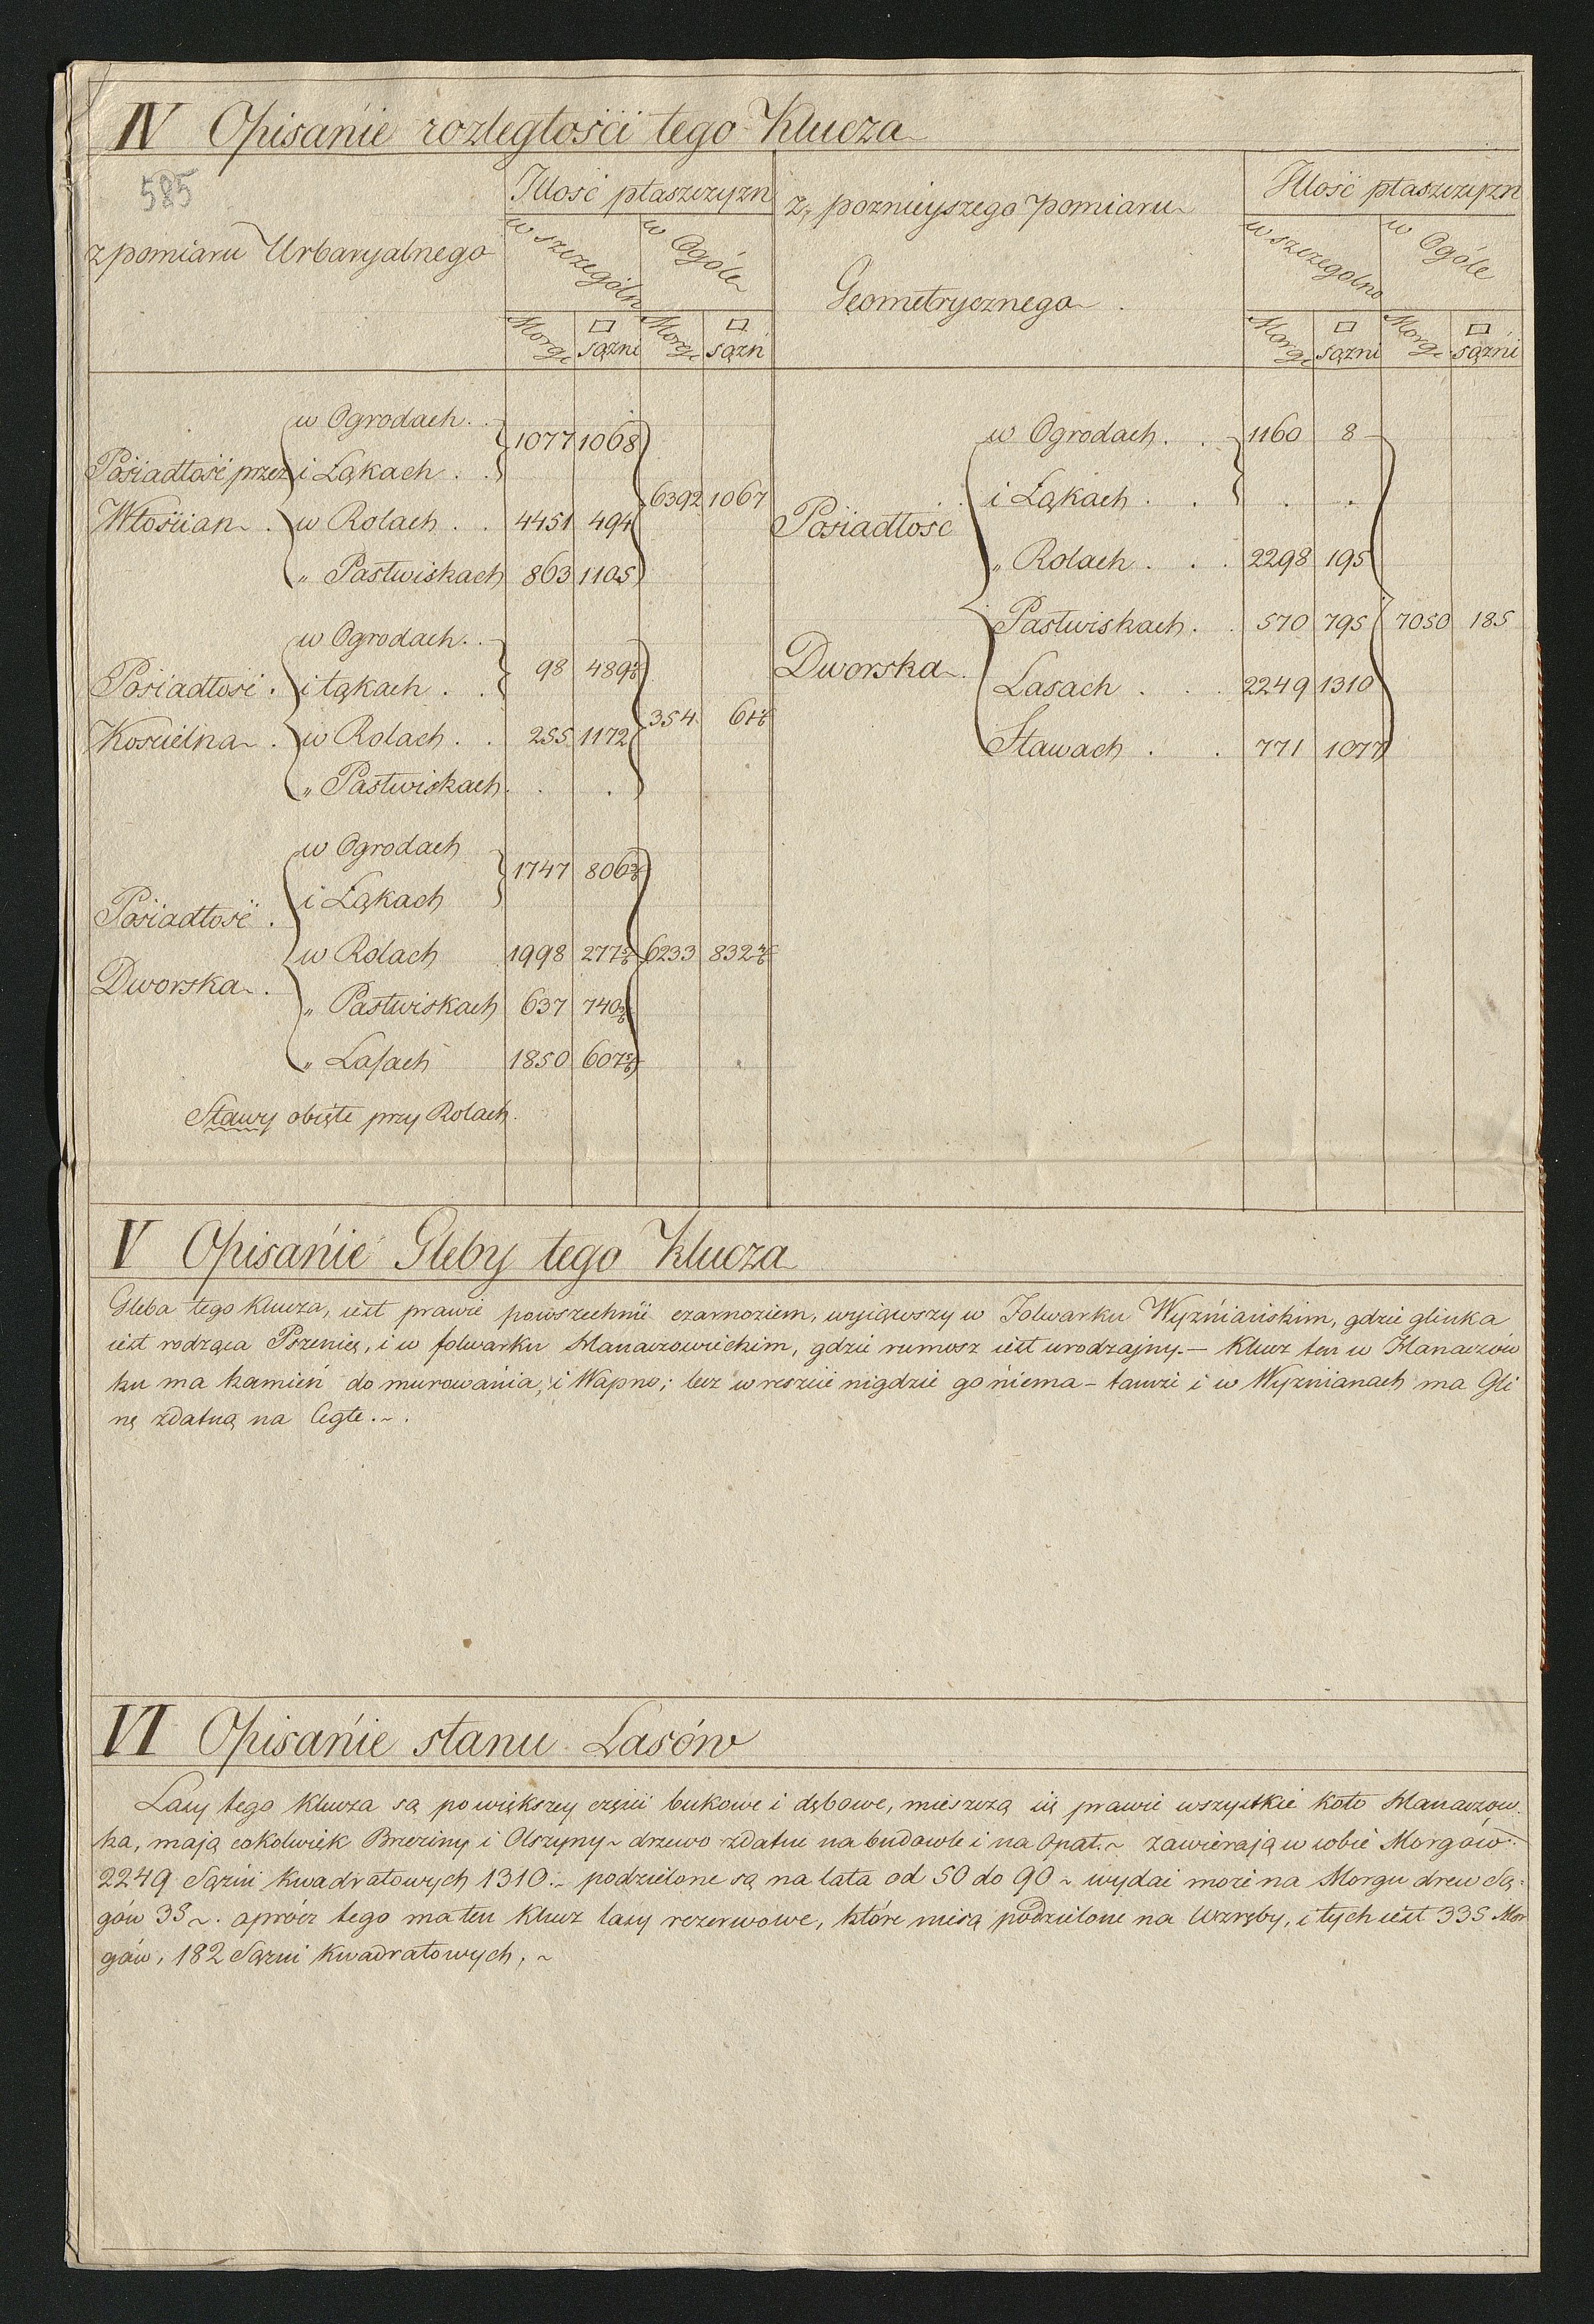 IV Opisanie rozległości tego Klucza
585
z pomiaru Urbaryalnego
Ilość płaszczyzn
w szczególn
w Ogóle
Morgi
□ sążni
Morgi
□ sążń
z, poznieyszego pomiaru
Geometrycznego
Ilość płaszczyzn
w szczegolno
w Ogóle
Morgi
□ sążni
Morgi
□ sążni
Posiadłość przez Włościan
w Ogrodach
i Łąkach 1077 1068
w Rolach 4451 494
„ Pastwiskach 863 1105
6392 1067
Posiadłość Kościelna
w Ogrodach
i łąkach 98 489
w Rolach 255 1172
„ Pastwiskach
354 61
Posiadłość Dworska
w Ogrodach
i Łąkach 1747 806
w Rolach 1998 277
„ Pastwiskach 637 740
„ Lasach 1850 607
6233 832
Stawy obięte przy Rolach
Posiadłość Dworska
w Ogrodach 1160 8
i Łąkach
„ Rolach 2298 195
Pastwiskach 570 795
Lasach 2249 1310
Stawach 771 1077
7050 185
V Opisanie Gleby tego Klucza
Gleba tego Klucza, iest prawie powszechnie czarnoziem, wyiąwszy w Folwarku Wyżniańskim, gdzie glinka
iest rodząca Pszenicę, i w folwarku Hanaczowieckim, gdzie rumosz iest urodzajny. — Klucz ten w Hanaczów
ku ma kamień do murowania, i Wapno; lecz w reszcie nigdzie go niema – tamże i w Wyżnianach ma Gli
nę zdatną na Cegłe. ~ .
VI Opisanie stanu Lasów
Lasy tego Klucza są powiększey części bukowe i dębowe, mieszczą się prawie wszystkie koło Hanaczow
ka, mają cokolwiek Brzeziny i Olszyny ~ drzewo zdatne na budowle i na Opał. ~ zawierają w sobie Morgów
2249 Sążni kwadratowych 1310. ~ podzielone są na lata od 50 do 90 ~ wydać może na Morgu drew Są:
gów 35 ~. oprócz tego ma ten Klucz lasy rezerwowe, które niesą podzielone na Wzręby, i tych iest 335 Mor
gów, 182 Sążni kwadratowych, ~